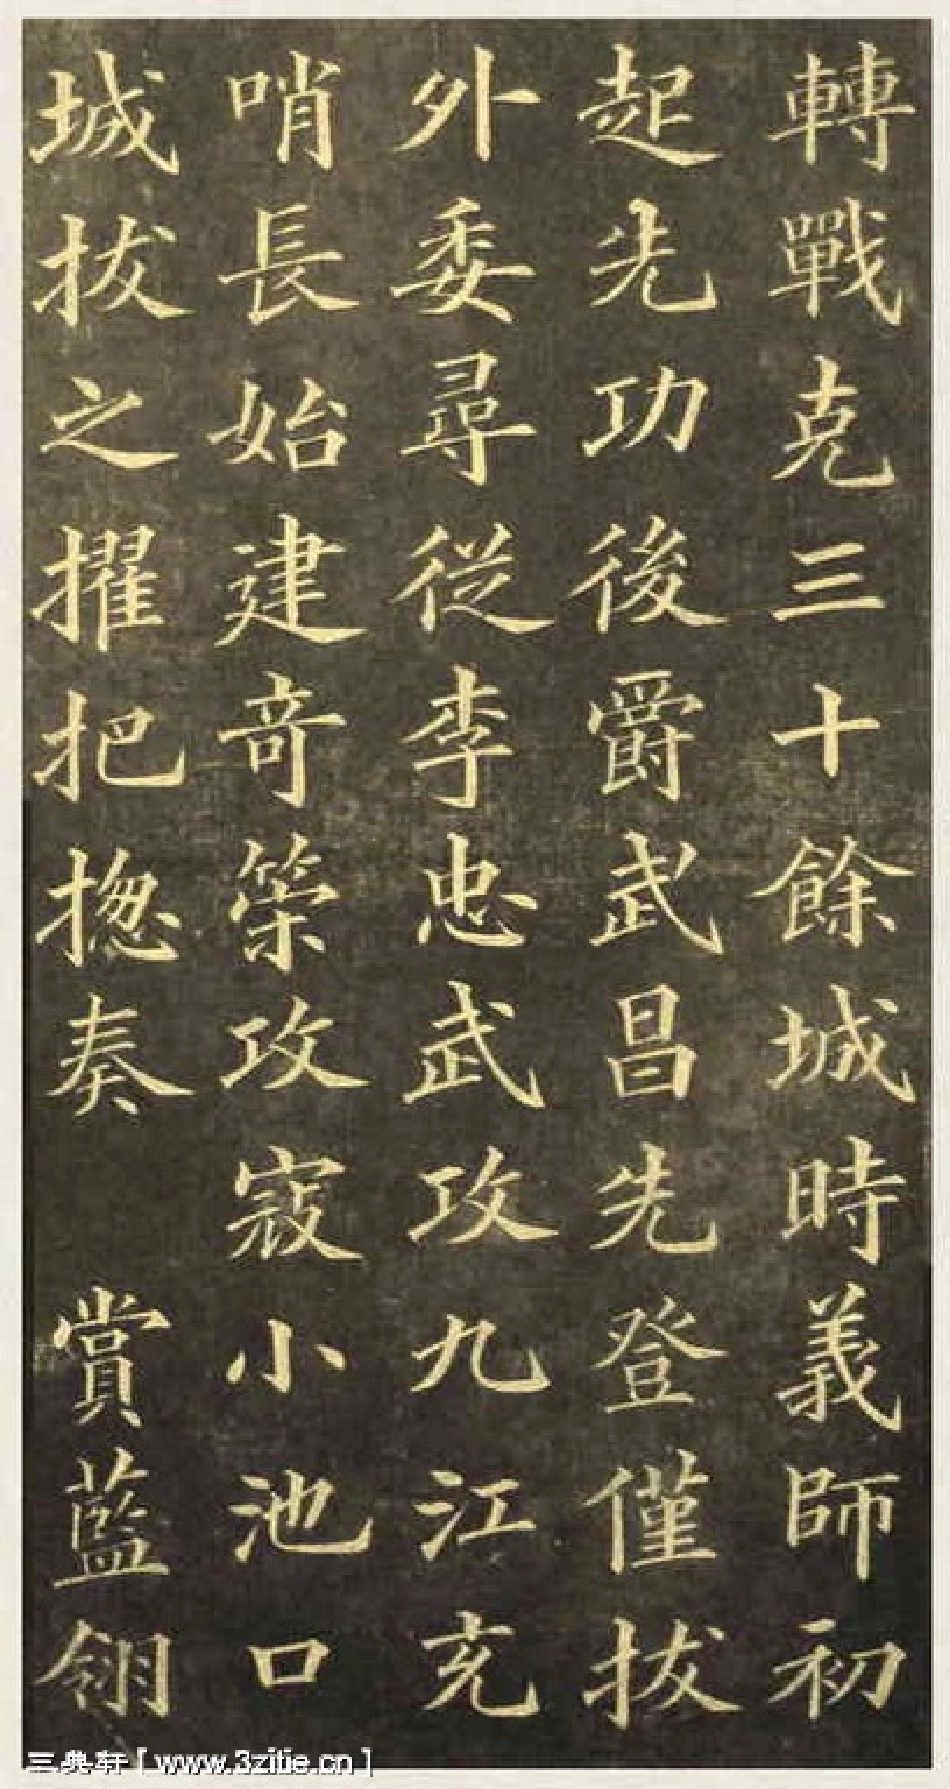 轉戰克三十餘城時義師初
起先功後爵武昌先登僅拔
外委尋從李忠武攻九江充
哨長始建奇策攻寇小池口
城拔之擢把摠奏 賞藍翎
三典轩 [ www.3zitie.cn ]